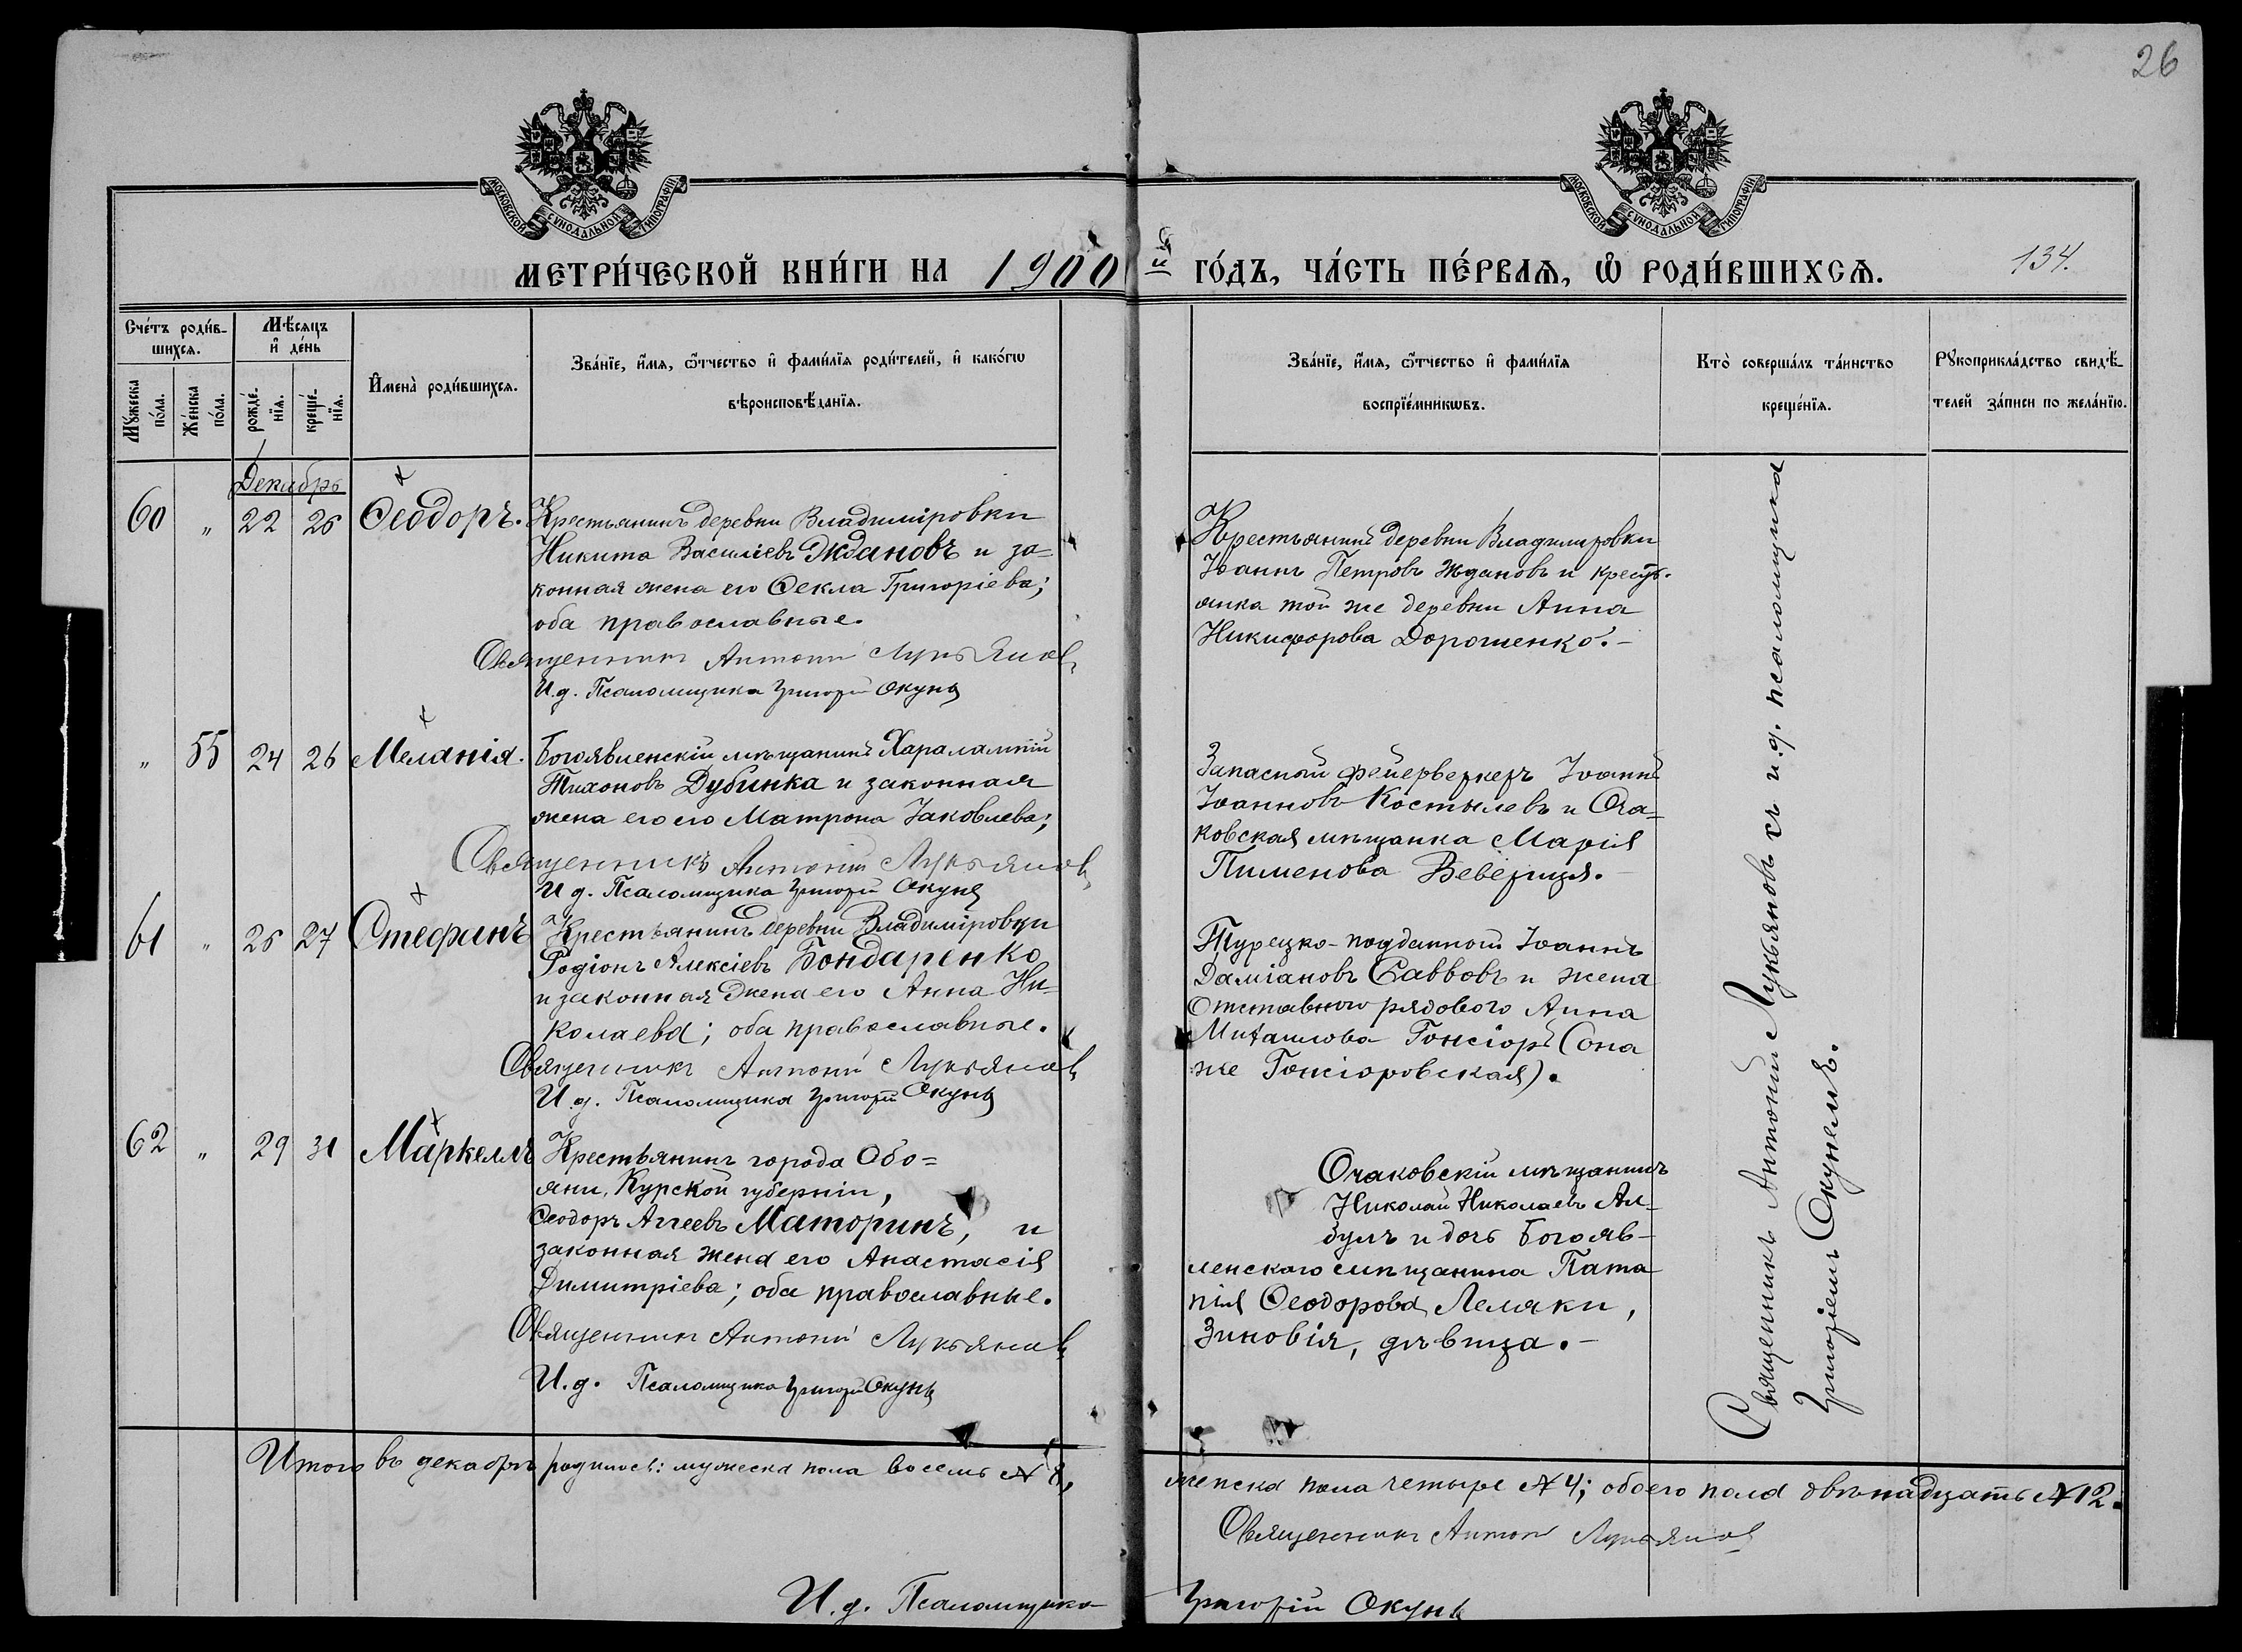 26
МОСКОВСКОЙ СѴНОДАЛЬНОЙ ТИПОГРАФІИ
МОСКОВСКОЙ СѴНОДАЛЬНОЙ ТИПОГРАФІИ
МЕТРИ́ЧЕСКОЙ КНИ́ГИ НА 1900 й ГО́ДЪ, ЧА́СТЬ ПЕ́РВАѦ, Ѡ РОДИ́ВШИХСѦ.
134.
Сче́тъ роди́в-
шихсѧ.
Мꙋжеска по́ла.
Же́нска по́ла.
Мѣ́сѧцъ
и҆ де́нь
рожде́-
нїѧ.
креще́-
нїѧ.
И҆мена̀ роди́вшихсѧ.
Зва́нїе, и҆́мѧ, ѻ҆́тчество и҆ фами́лїѧ роди́телей, и҆ како́гѡ
вѣроисповѣ́данїѧ.
Зва́нїе, и҆́мѧ, ѻ҆́тчество и҆ фами́лїѧ
воспрїе́мникѡвъ.
Кто̀ соверша́лъ та́инство
креще́нїѧ.
Рꙋкоприкла́дство свидѣ́-
телей за́писи по жела́нїю.
Декабрь
60 " 22 26 Ѳеодоръ.
Крестьянинъ деревни Владиміровки
Никита Василіевъ Ждановъ и за=
конная жена его Ѳекла Григоріева;
оба православные.
Священникъ Антоній Лукьяновъ
И.д. Псаломщика Григорій Окунь
Крестьянинъ деревни Владимровки
Іоаннъ Петровъ Ждановъ и кресть-
янка той же деревни Анна
Никифорова Дорошенко. –
" 55 24 26 Меланія.
Богоявленскій мѣщанинъ Харалампій
Тихоновъ Дубинка и законная
жена его его Матрона Іаковлева;
Священникъ Антоній Лукьяновъ
И д. Псаломщика Григорій Окунь
Запасный фейерверкеръ Іоаннъ
Іоанновъ Костылевъ и Оча=
ковская мѣщанка Марія
Пименова Веверица. –
61 " 26 27 Стефанъ
Крестьянинъ деревни Владиміровки
Родіонъ Алексіевъ Бондаренко
и законная жена его Анна Ни-
колаева; оба православные.
Священникъ Антоній Лукьяновъ
И.д. Псаломщика Григорій Окунь
Турецко-подданный Іоаннъ
Даміановъ Савовъ и жена
Отставного рядового Анна
Михаилова Гонсіоръ (она
же Гонсіоровская).
62 " 29 31 Маркеллъ
Крестьянинъ города Обо=
яни, Курской губерніи,
Ѳеодоръ Аггеевъ Маторинъ, и
законная жена его Анастасія
Димитріева; оба православные.
Священникъ Антоній Лукьяновъ
И.д. Псаломщика Григорій Окунь
Очаковскій мѣщанинъ
Николай Николаевъ
и дочь Богояв-
ленского мѣщанина Пата
пія Ѳеодорова Лемяки,
Зиновія, дѣвица. –
Священникъ Антоній Лукьяновъ съ и.д. псаломщика
Григоріемъ Окунемъ.
Итого въ декабрѣ родилось: мужеска пола восемь № 8, женска пола четыре № 4; обоего пола двѣнадцать № 12.
Священникъ Антоній Лукьяновъ
И.д. Псаломщика Григорій Окунь